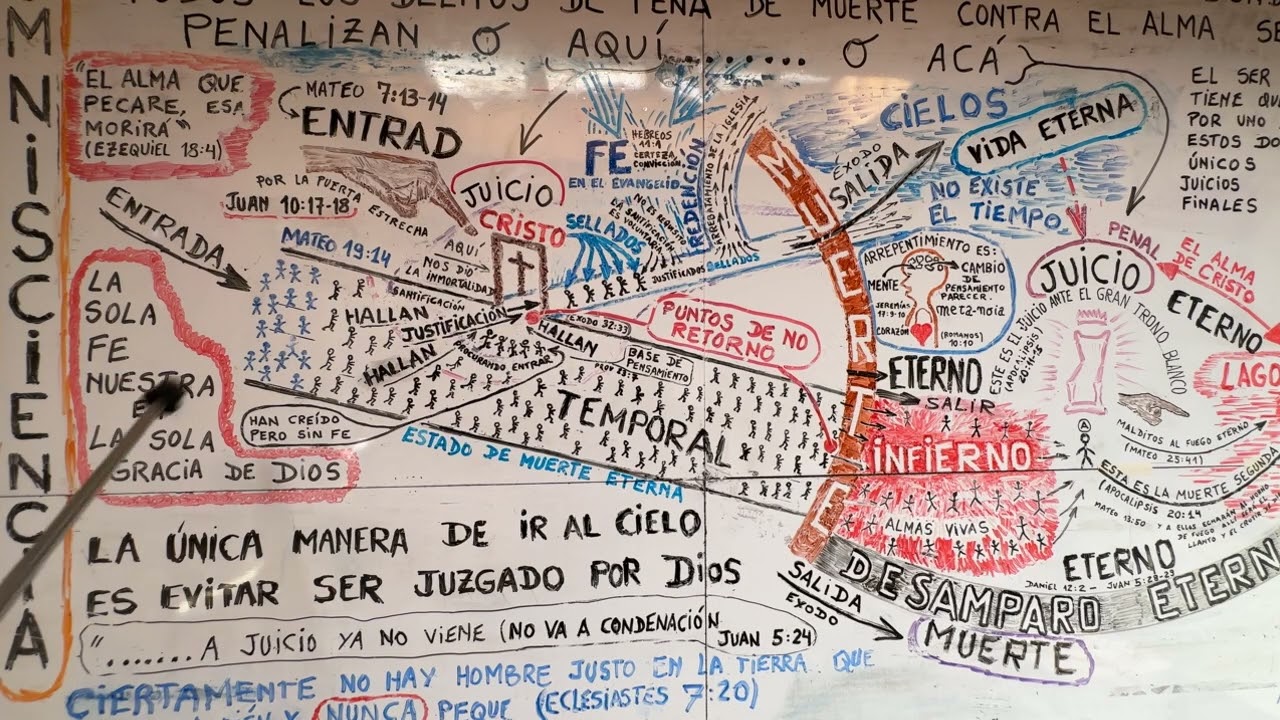 DE MUERTE CONTRA EL ALMA
PENALIZAN O AQUÍ........ O ACÁ
OMNISCIENCIA
"EL ALMA QUE
PECARE, ESA
MORIRÁ"
(EZEQUIEL 18:4)
MATEO 7:13-14
ENTRAD
POR LA PUERTA
ESTRECHA
JUAN 10:17-18
ENTRADA
MATEO 19:14
AQUÍ
NOS DIÓ
LA INMORTALIDAD
JUICIO
CRISTO
FE
HEBREOS
11:1
CERTEZA
CONVICCIÓN
EN EL EVANGELIO
SELLADOS
REDENCIÓN
ARREBATAMIENTO DE LA IGLESIA
JUSTIFICADOS SELLADOS
CIELOS
VIDA ETERNA
ÉXODO
SALIDA
NO EXISTE
EL TIEMPO
EL SER
TIENE
POR UNO
ESTOS
ÚNICOS
JUICIOS
FINALES
MUERTE
ARREPENTIMIENTO ES:
CAMBIO
DE
PENSAMIENTO
PARECER.
meta-noia
MENTE
JEREMÍAS
17:9-10
CORAZÓN
(ROMANOS)
10:10
PENAL
JUICIO
ANTE EL GRAN TRONO BLANCO
ESTE ES EL JUICIO
(APOCALIPSIS)
20:11-15
EL ALMA
DE CRISTO
ETERNO
LAGO
LA
SOLA
FE
NUESTRA
LA SOLA
GRACIA DE DIOS
SANTIFICACIÓN
HALLAN
JUSTIFICACIÓN
HALLAN
PROCURANDO ENTRAR
HALLAN
ÉXODO 32:33
PUNTOS DE NO
RETORNO
BASE DE
PENSAMIENTO
TEMPORAL
HAN CREÍDO
PERO SIN FE
ESTADO DE MUERTE ETERNA
ETERNO
SALIR
INFIERNO
ALMAS VIVAS
MALDITOS AL FUEGO ETERNO
(MATEO 25:41)
ESTA ES LA MUERTE SEGUNDA
(APOCALIPSIS 20:14
MATEO 13:50
LLANTO Y EL
ETERNO
DANIEL 12:2 - JUAN 5:28-29
DESAMPARO
SALIDA
EXODO
MUERTE
LA ÚNICA MANERA DE IR AL CIELO
ES EVITAR SER JUZGADO POR DIOS
"....... A JUICIO YA NO VIENE (NO VA A CONDENACIÓN
JUAN 5:24)
CIERTAMENTE NO HAY HOMBRE JUSTO EN LA TIERRA QUE
NUNCA PEQUE (ECLESIASTES 7:20)